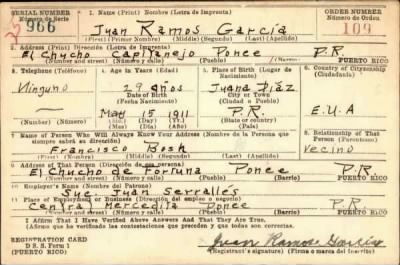 SERIAL NUMBER 1. Name (Print) Nombre (Letra de Imprenta) ORDER NUMBER
Número de Serie Número de Orden
966 Juan Ramos García 109
(First) (Primer Nombre) (Middle) (Segundo) (Last) (Apellido)
2. Address (Print) Dirección (Letra de Imprenta)
El Chucho Capitanejo Ponce P.R.
(Pueblo) (Barrio) PUERTO RICO
3. Telephone (Teléfono) 4. Age in Years (Edad) 5. Place of Birth (Lugar de Nacimiento) 6. Country of Citizenship (Ciudadanía)
Ninguno 29 años Juana Díaz
Date of Birth City or Town
(Fecha Nacimiento) (Ciudad o Pueblo)
May 15 1911 P.R. E.U.A
(Number) (Número) (Mo.) (Day) (Yr.) (State or country) (Country) (País)
(Mes) (Día) (Año) (Estado o país)
7. Name of Person Who Will Always Know Your Address (Nombre de la Persona que siempre sabrá su dirección) 8. Relationship of That Person (Parentesco)
Francisco Bosh Vecino
(First) (Nombre) (Middle) (Segundo) (Last) (Apellido)
9. Address of That Person (Dirección de esa persona)
El Chucho de Fortuna Ponce P.R
(Pueblo) (Barrio) PUERTO RICO
10. Employer's Name (Nombre del Patrono)
Suc. Juan Serrallés
11. Place of Employment or Business (Dirección del empleo o negocio)
Central Mercedita Ponce P.R
(Number) (Número) (Street) (Calle) (Pueblo) (Barrio) PUERTO RICO
I Affirm That I Have Verified Above Answers And That They Are True.
(Afirmo que he verificado las contestaciones que preceden y que todas son correctas.
REGISTRATION CARD
D. S. S. Form 1
(PUERTO RICO) Juan Ramos García
(Registrant's signature) (Firma o marca del inscrito)